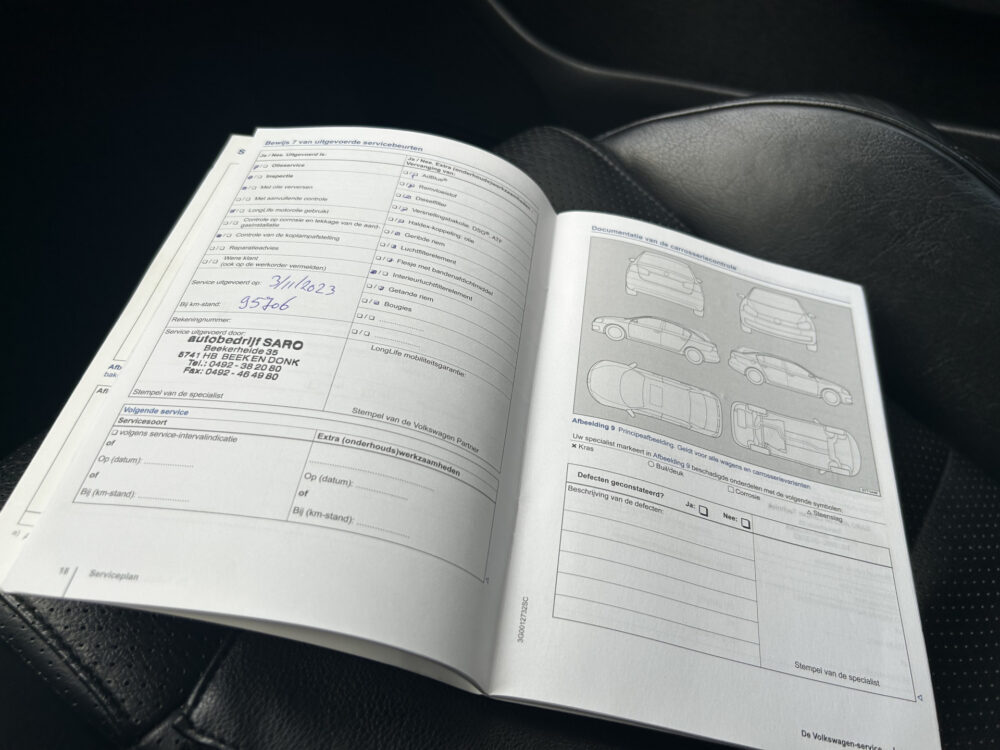 S
Bewijs 7 van uitgevoerde servicebeurten
Ja / Nee. Uitgevoerd is:
Olieservice
Inspectie
Met olie verversen
Met aanvullende controle
LongLife motorolie gebruikt
Controle op corrosie en lekkage van de aardgasinstallatie
Controle van de koplampafstelling
Reparatieadvies
Wens klant
(ook op de werkorder vermelden)
Service uitgevoerd op: 3/11/2023
Bij km-stand: 95706
Rekeningnummer:
Service uitgevoerd door:
autobedrijf SARO
Beekerheide 35
5741 HB BEEK EN DONK
Tel.: 0492 - 38 20 80
Fax: 0492 - 46 49 80
Stempel van de specialist
Ja / Nee. Extra (onderhouds)werkzaamheden:
Vervanging van:
AdBlue®
Remvloeistof
Dieselfilter
Versnellingsbakolie, DSG®, ATF
Haldex-koppeling: olie
Geribde riem
Luchtfilterelement
Flesje met bandenafdichtmiddel
Interieurluchtfilterelement
Getande riem
Bougies
LongLife mobiliteitsgarantie:
Stempel van de Volkswagen Partner
Volgende service
Servicesoort
volgens service-intervalindicatie
of
Op (datum):
of
Bij (km-stand):
Extra (onderhouds)werkzaamheden
Op (datum):
of
Bij (km-stand):
18 Serviceplan
Documentatie van de carrosseriecontrole
Afbeelding 9 Principeafbeelding: Geldt voor alle wagens en carrosserievarianten
Uw specialist markeert in Afbeelding 9 beschadigde onderdelen met de volgende symbolen:
Kras
Buil/deuk
Corrosie
Steenslag
Defecten geconstateerd? Ja: Nee:
Beschrijving van de defecten:
Stempel van de specialist
3G0012732SC
De Volkswagen-service